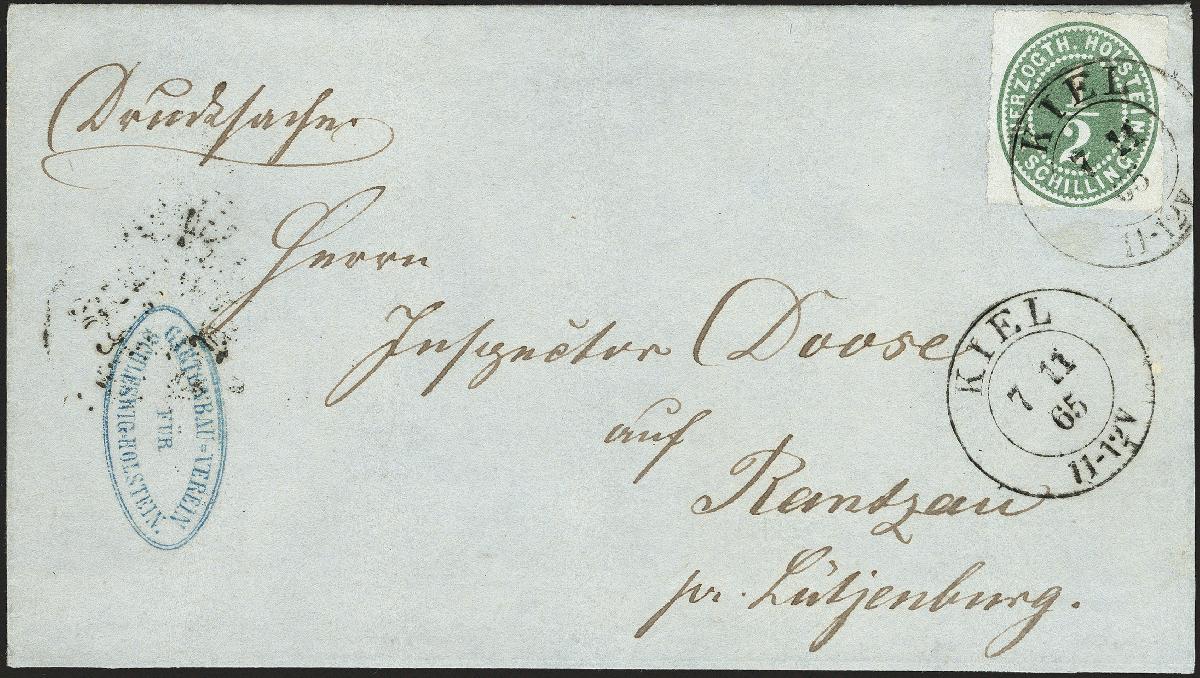 Drucksache
HERZOGTH. HOLSTEIN
1/2
SCHILLING
KIEL
7 11
65
11-12V
Herrn
Inspector Doose
auf
Rantzau
pr. Lütjenburg.
KIEL
7 11
65
11-12V
GARTENBAU=VEREIN
FÜR
SCHLESWIG-HOLSTEIN